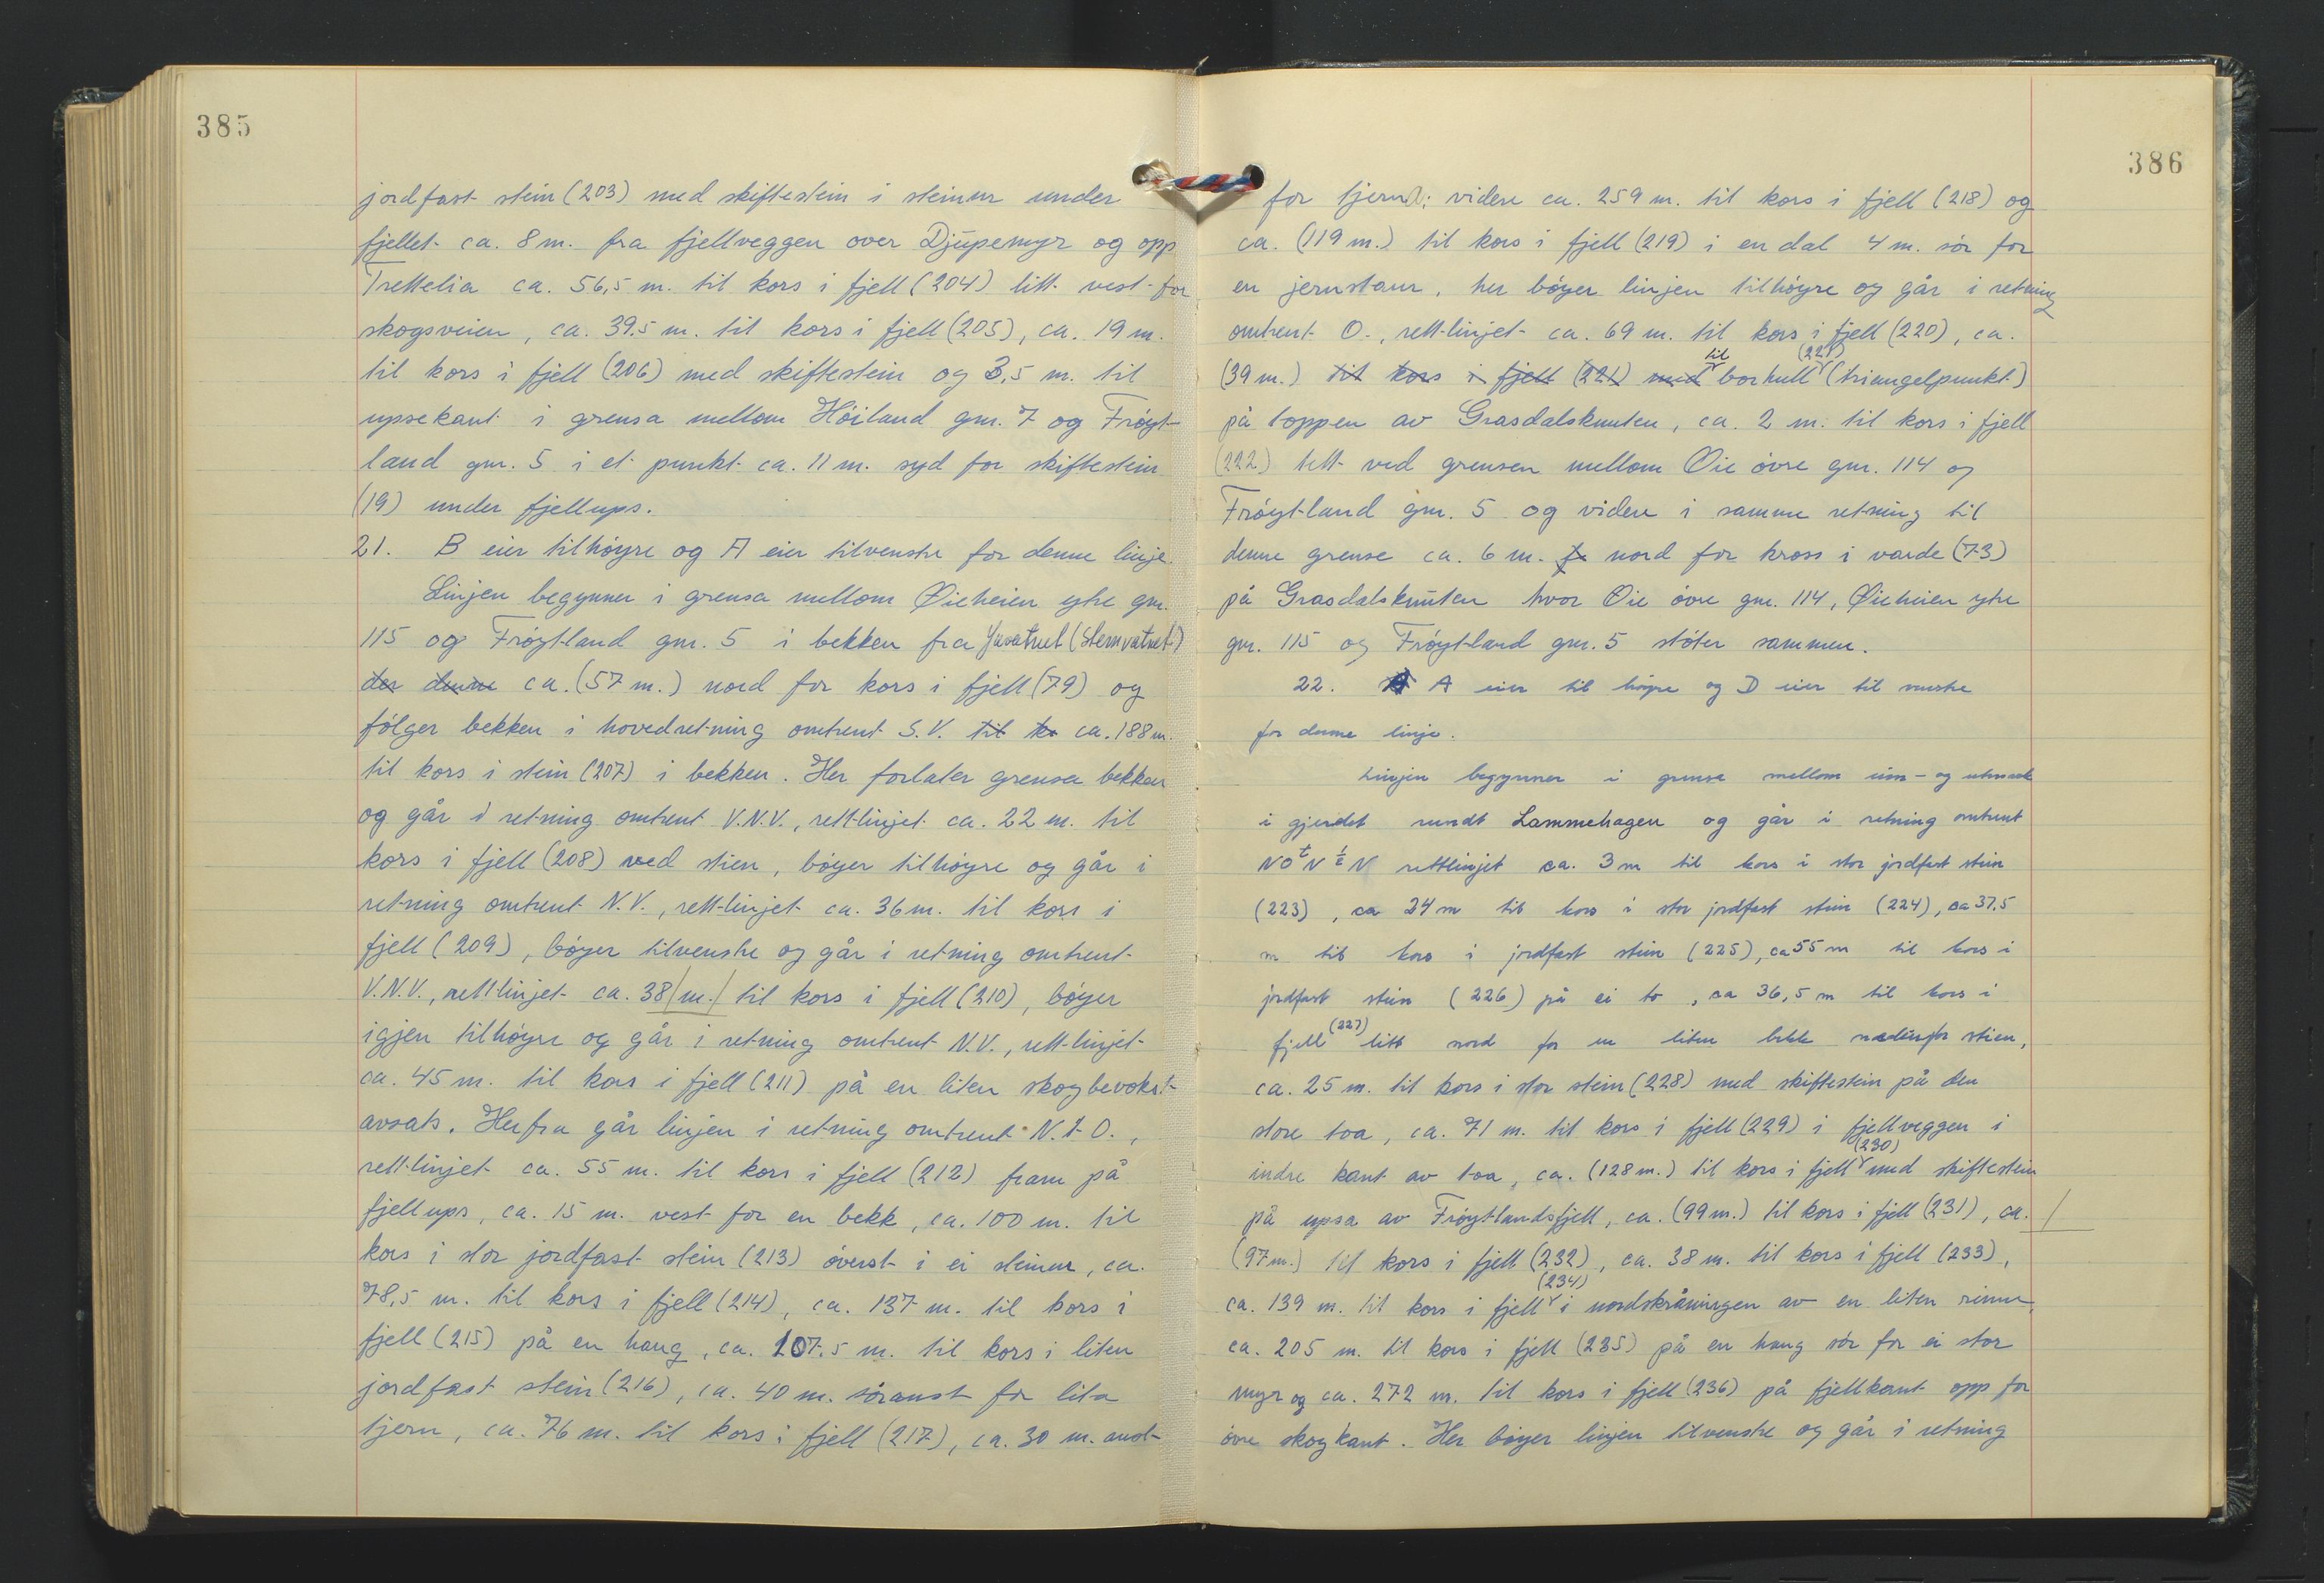 385
jordfast stein (203) med skiftestein i steinur under
fjellet ca. 8 m. fra fjellveggen over Djupemyr og opp
Trettelia ca. 56,5 m. til kors i fjell (204) litt vest for
skogsveien, ca. 39.5 m. til kors i fjell (205), ca. 19 m.
til kors i fjell (206) med skiftestein og 3,5 m. til
upsekant i grensa mellom Höiland gnr. 7 og Fröyt-
land gnr. 5 i et punkt ca. 11 m. syd for skiftestein
(19) under fjellups.
21. B eier tilhöyre og A eier tilvenstre for denne linje.
Linjen begynner i grensa mellom Øieheien ytre gnr.
115 og Fröytland gnr. 5 i bekken fra (Stemvatnet)
der denne ca. (57 m.) nord for kors i fjell (79) og
fölger bekken i hovedretning omtrent S.V. til ko ca. 188 m.
til kors i stein (207) i bekken. Her forlater grensa bekken
og går i retning omtrent V.N.V., rett-linjet ca. 22 m. til
kors i fjell (208) ved stien, böyer tilhöyre og går i
retning omtrent N.V., rett-linjet ca. 36 m. til kors i
fjell (209), böyer tilvenstre og går i retning omtrent
V.N.V., rett-linjet ca. 38/m./ til kors i fjell (210), böyer
igjen tilhöyre og går i retning omtrent N.V., rett-linjet
ca. 45 m. til kors i fjell (211) på en liten skogbevokst
avsats. Herfra går linjen i retning omtrent N.t.O.,
rett-linjet ca. 55 m. til kors i fjell (212) fram på
fjellups, ca. 15 m. vest for en bekk, ca. 100 m. til
kors i stor jordfast stein (213) överst i ei steinur, ca.
78,5 m. til kors i fjell (214), ca. 137 m. til kors i
fjell (215) på en haug, ca. 107.5 m. til kors i liten
jordfast stein (216), ca. 40 m. söraust for lita
tjern, ca. 76 m. til kors i fjell (217), ca. 30 m. aust
386
for tjern; videre ca. 259 m. til kors i fjell (218) og
ca. (119 m.) til kors i fjell (219) i en dal 4 m. sör for
en jernstaur, her böyer linjen tilhöyre og går i retning
omtrent O., rett-linjet ca. 69 m. til kors i fjell (220), ca.
(39 m.) til kors i fjell (221) med til borhull (221) (triangelpunkt)
på toppen av Grasdalsknuten, ca. 2 m. til kors i fjell
(222) tett ved grensen mellom Øie övre gnr. 114 og
Fröytland gnr. 5 og videre i samme retning til
denne grense ca. 6 m. fr nord for kross i varde (73)
på Grasdalsknuten hvor Øie övre gnr. 114, Øieheien ytre
gnr. 115 og Fröytland gnr. 5 stöter sammen.
22. A eier til höyre og D eier til venstre
for denne linje.
Linjen begynner i grensa mellom inn- og utmark
i gjerdet rundt Lammehagen og går i retning omtrent
NO t N ½ N rettlinjet ca. 3 m til kors i stor jordfast stein
(223), ca 24 m til kors i stor jordfast stein (224), ca 37.5
m til kors i jordfast stein (225), ca 55 m til kors i
jordfast stein (226) på ei to, ca 36,5 m til kors i
fjell (227) litt nord for en liten bekk nedenfor stien,
ca. 25 m. til kors i stor stein (228) med skiftestein på den
store toa, ca. 71 m. til kors i fjell (229) i fjellveggen i
indre kant av toa, ca. (128 m.) til kors i fjell (230) med skiftestein
på upsa av Fröytlandsfjell, ca. (99 m.) til kors i fjell (231), ca. /
(97 m.) til kors i fjell (232), ca. 38 m. til kors i fjell (233),
ca. 139 m. til kors i fjell (234) i nordskråningen av en liten rinne,
ca. 205 m. til kors i fjell (235) på en haug sör for ei stor
myr og ca. 272 m. til kors i fjell (236) på fjellkant opp for
övre skogkant. Her böyer linjen tilvenstre og går i retning